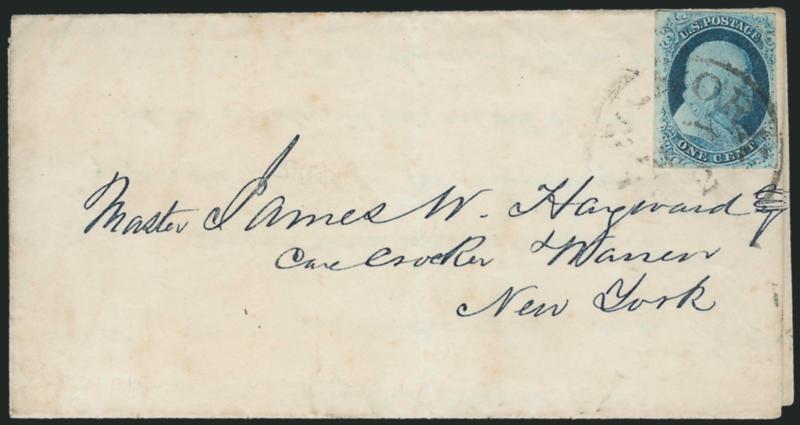 U.S. POSTAGE
ONE CENT
Master James W. Hayward Esq
Care Crocker & Warren
New York